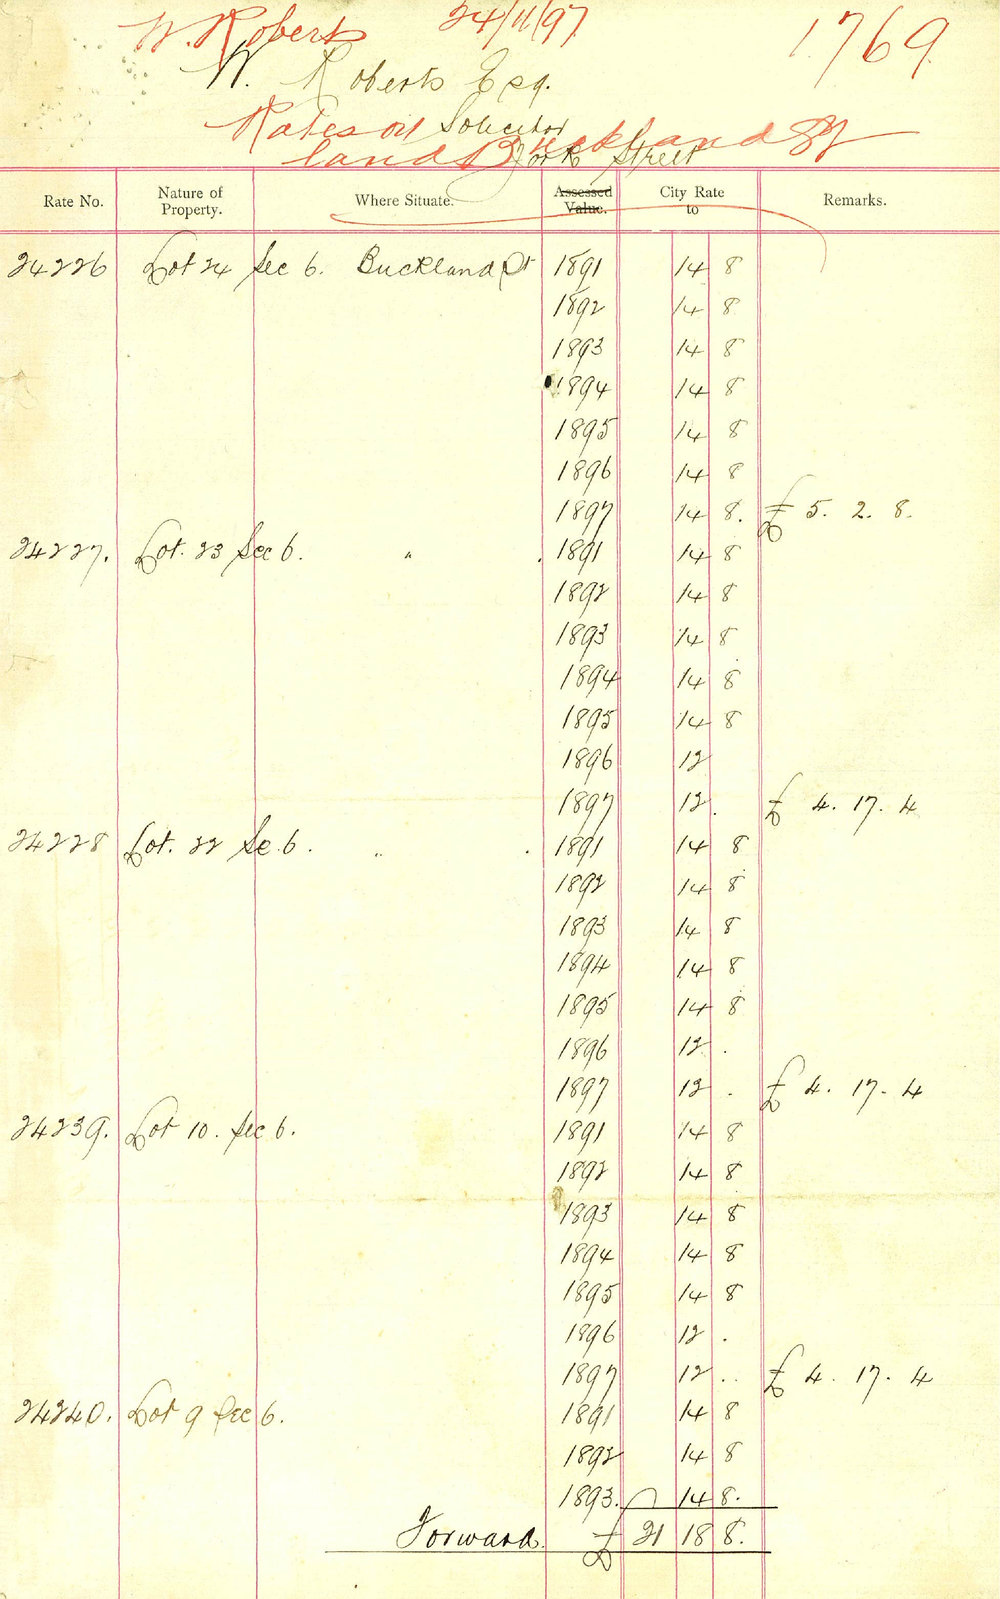 W. Roberts 24/11/97 1769
W. Roberts Esq.
Rates on Solicitor
land Buckland St
York Street
Rate No. Nature of Property. Where Situate. Assessed Value. City Rate to Remarks.
24226 Lot 24 Sec 6. Buckland St 1891 14 8
1892 14 8
1893 14 8
1894 14 8
1895 14 8
1896 14 8
1897 14 8. £ 5. 2. 8.
24227. Lot. 23 Sec 6. " 1891 14 8
1892 14 8
1893 14 8
1894 14 8
1895 14 8
1896 12
1897 12. £ 4. 17. 4
24228 Lot. 22 Sec. 6. " 1891 14 8
1892 14 8
1893 14 8
1894 14 8
1895 14 8
1896 12 .
1897 12 . £ 4. 17. 4
24239. Lot 10. Sec 6. 1891 14 8
1892 14 8
1893 14 8
1894 14 8
1895 14 8
1896 12 .
1897 12 .. £ 4. 17. 4
24240. Lot 9 Sec 6. 1891 14 8
1892 14 8
1893. 14 8.
Forward. £ 21 18 8.